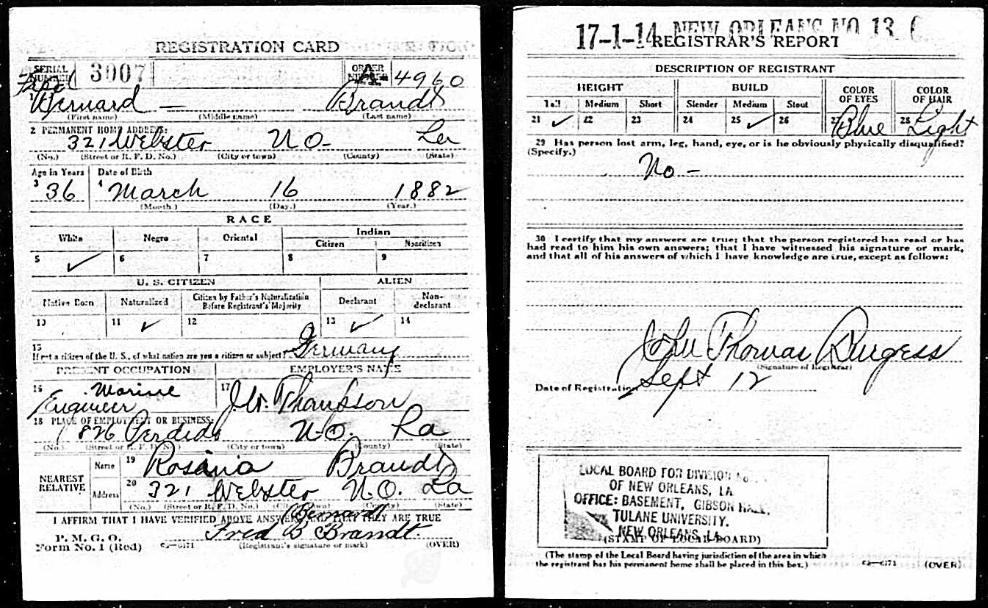 REGISTRATION CARD
SERIAL NUMBER 3007 ORDER NUMBER A 4960
1 Bernard — Brandt
(First name) (Middle name) (Last name)
2 PERMANENT HOME ADDRESS:
321 Webster N O- La
(No.) (Street or R. F. D. No.) (City or town) (County) (State)
Age in Years Date of Birth
3 36 4 March 16 1882
(Month.) (Day.) (Year.)
RACE
White Negro Oriental Indian
Citizen Noncitizen
5 ✓ 6 7 8 9
U. S. CITIZEN ALIEN
Native Born Naturalized Citizen by Father's Naturalization Before Registrant's Majority Declarant Non-declarant
10 11 ✓ 12 13 ✓ 14
15
If not a citizen of the U. S., of what nation are you a citizen or subject? Germany
PRESENT OCCUPATION EMPLOYER'S NAME
16 Marine 17
Engineer J.W. Thompson
18 PLACE OF EMPLOYMENT OR BUSINESS:
826 Perdido N.O. La
(No.) (Street or R. F. D. No.) (City or town) (County) (State)
NEAREST RELATIVE
Name 19 Rosina Brandt
Address 20 321 Webster N.O. La
(No.) (Street or R. F. D. No.) (City or town) (County) (State)
I AFFIRM THAT I HAVE VERIFIED ABOVE ANSWERS AND THAT THEY ARE TRUE
Bernard
P. M. G. O.
Form No. 1 (Red) Fred B Brandt
(Registrant's signature or mark) (OVER)
17-1-14 NEW ORLEANS NO 13
REGISTRAR'S REPORT
DESCRIPTION OF REGISTRANT
HEIGHT BUILD COLOR OF EYES COLOR OF HAIR
Tall Medium Short Slender Medium Stout
21 ✓ 22 23 24 25 ✓ 26 27 Blue 28 Light
29 Has person lost arm, leg, hand, eye, or is he obviously physically disqualified?
(Specify.)
No -
30 I certify that my answers are true; that the person registered has read or has
had read to him his own answers; that I have witnessed his signature or mark,
and that all of his answers of which I have knowledge are true, except as follows:
John Thomas Burgess
(Signature of Registrar)
Date of Registration Sept 12
LOCAL BOARD FOR DIVISION
OF NEW ORLEANS, LA
OFFICE: BASEMENT, GIBSON HALL,
TULANE UNIVERSITY.
NEW ORLEANS, LA.
(STAMP OF LOCAL BOARD)
(The stamp of the Local Board having jurisdiction of the area in which
the registrant has his permanent home shall be placed in this box.)
(OVER)